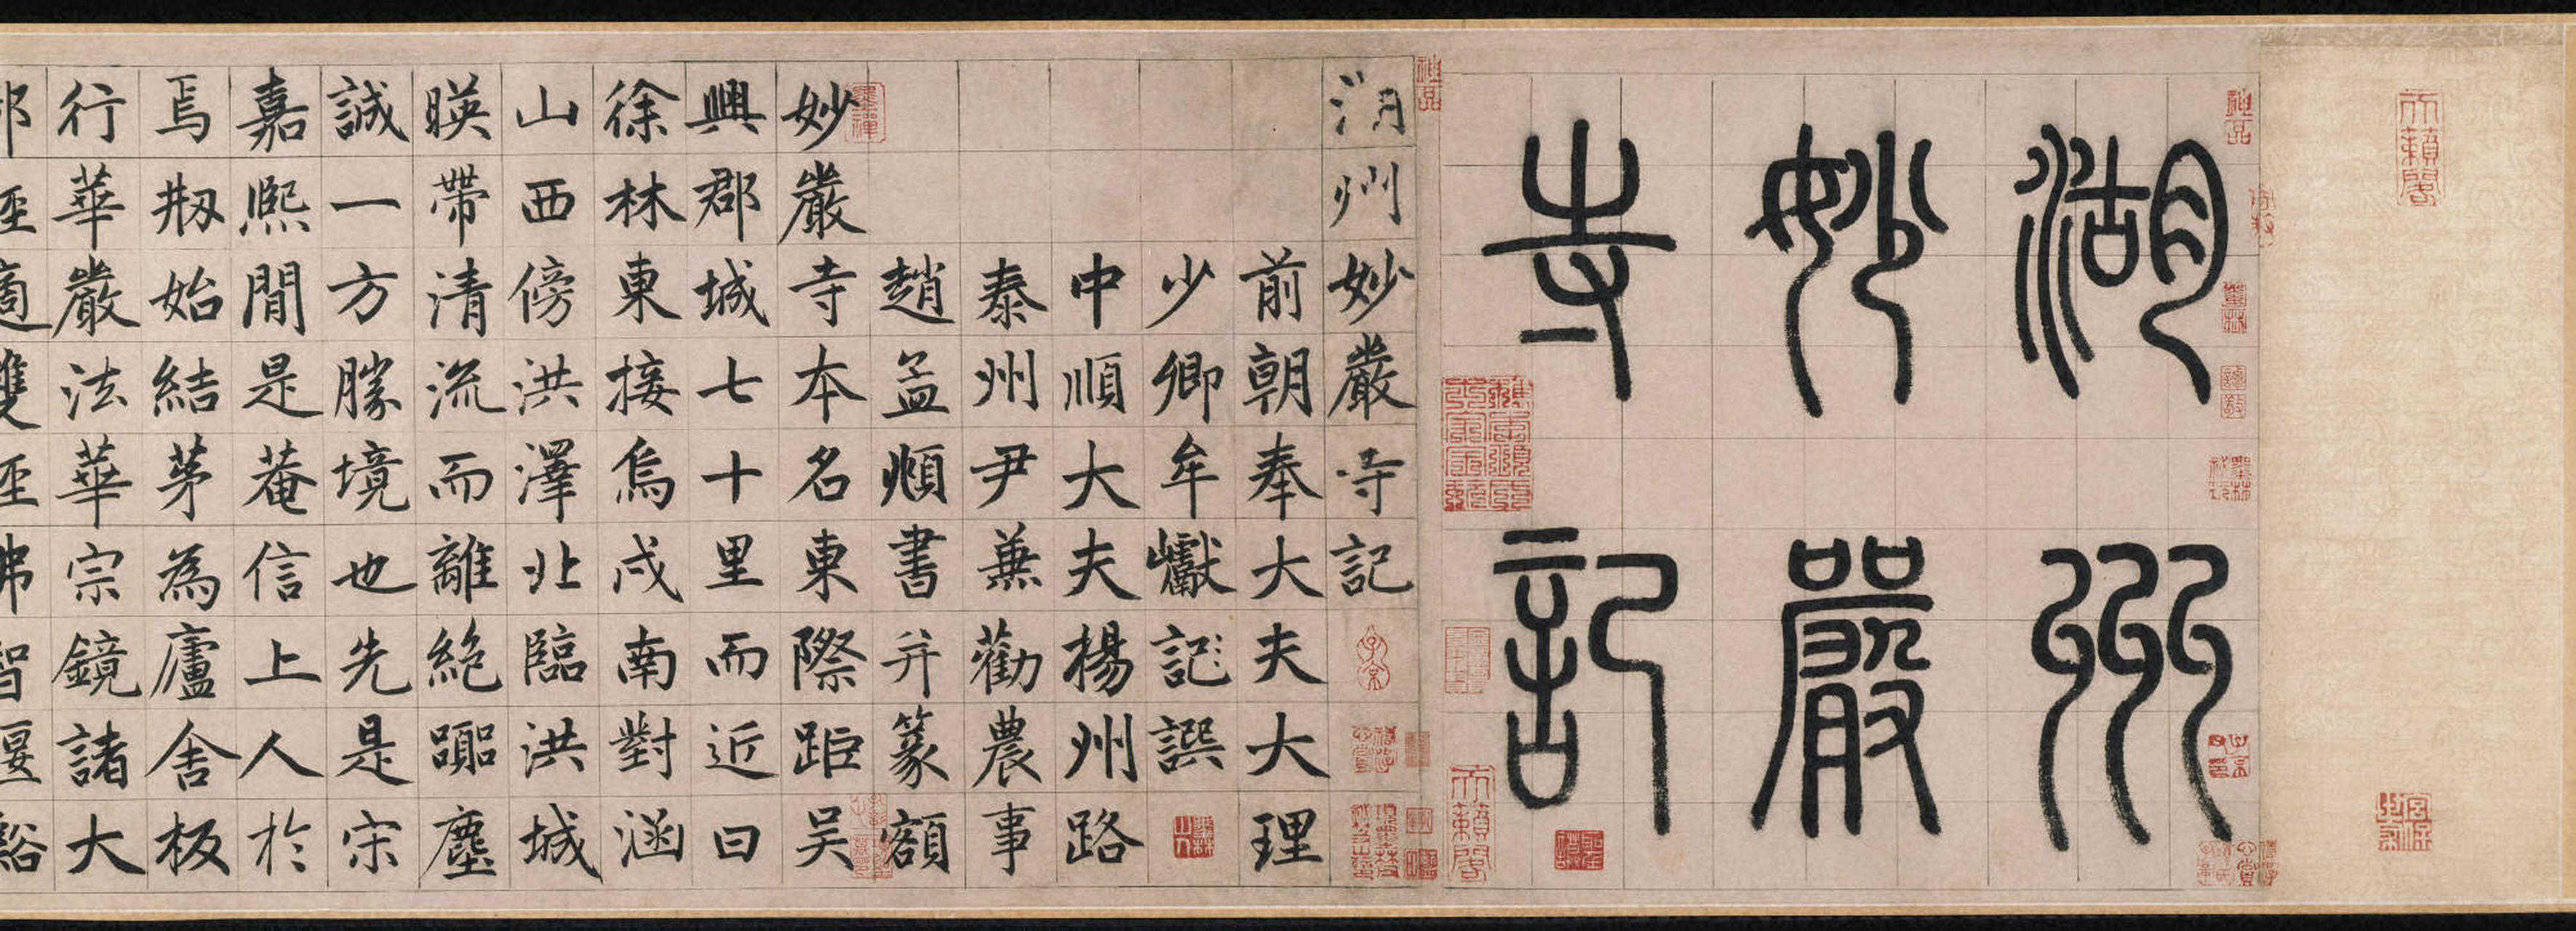 天籟閣
宮保世家
湖州
妙嚴
寺記
天籟閣
湖州妙嚴寺記
前朝奉大夫大理
少卿牟巘記譔
中順大夫楊州路
泰州尹兼勸農事
趙孟頫書并篆額
妙嚴寺本名東際距吴
興郡城七十里而近曰
徐林東接烏戍南對涵
山西傍洪澤北臨洪城
暎帶清流而離絶躢塵
誠一方勝境也先是宋
嘉熙間是菴信上人於
焉剏始結茅為廬舍板
行華嚴法華宗鏡諸大